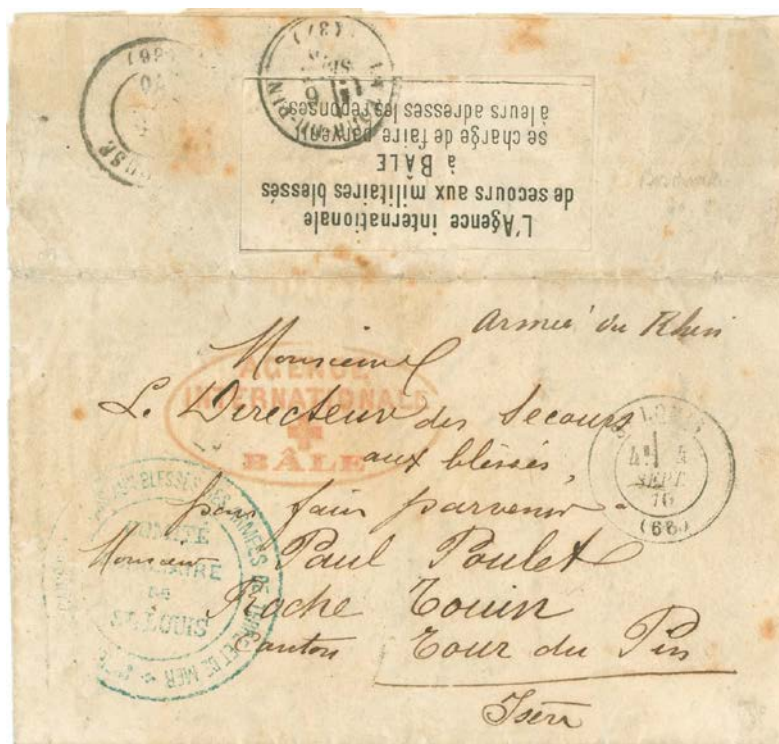 L'Agence internationale
de secours aux militaires blessés
à BÂLE
se charge de faire parvenir
à leurs adresses les réponses
LA TOUR-DU-PIN
6
SEPT
(37)
(36)
Armée du Rhin
Monsieur
Le Directeur des Secours
aux blessés,
pour faire parvenir à
Monsieur Paul Poulet
Roche Touin
Canton Tour du Pin
Isère
AGENCE
INTERNATIONALE
BÂLE
AUX BLESSÉS DES ARMÉES DE TERRE ET DE MER
COMITÉ
AUXILIAIRE
DE
ST LOUIS
ST LOUIS
4E
SEPT.
70
(68)